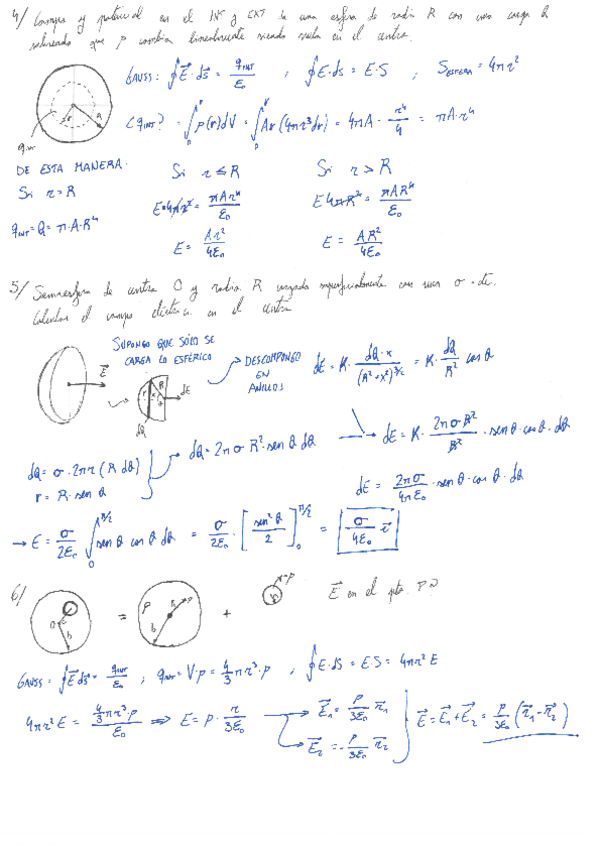 4/ Campo y potencial en el INT y EXT de una esfera de radio R con una carga Q
sabiendo que ρ cambia linealmente siendo nula en el centro.
GAUSS: ∮E⃗·dS⃗ = qINT/ε₀ ; ∮E·dS = E·S ; Sesfera = 4πr²
¿qINT? = ∫₀ʳ ρ(r)dV = ∫₀ʳ Ar(4πr²dr) = 4πA · r⁴/4 = πAr⁴
qINT
r
R
DE ESTA MANERA:
Si r>R
qINT = Q = π·A·R⁴
Si r≤R
E·4πr² = πAr⁴/ε₀
E = Ar²/4ε₀
Si r>R
E4πR² = πAR⁴/ε₀
E = AR²/4ε₀
5/ Semiesfera de centro O y radio R cargada superficialmente con una σ = cte.
Calcular el campo eléctrico en el centro
SUPONGO QUE SÓLO SE
CARGA LO ESFÉRICO
E⃗
dE
dQ
DESCOMPONGO
EN
ANILLOS
dE = K· dQ·x/(R²+x²)^3/2 = K· dQ/R² cos θ
dQ = σ·2πr (R dθ)
r = R·sen θ
dQ = 2πσR²·sen θ dθ
dE = K· 2πσR²/R² ·sen θ·cos θ·dθ
dE = 2πσ/4πε₀ ·sen θ·cos θ·dθ
→ E = σ/2ε₀ ∫₀^π/2 sen θ cos θ dθ = σ/2ε₀ · [sen²θ/2]₀^π/2 = σ/4ε₀ i⃗
6/
= + E⃗ en el pto. P?
GAUSS: ∮E⃗dS⃗ = qINT/ε₀ ; qINT = V·ρ = 4/3 πr³·ρ , ∮E·dS = E·S = 4πr²E
4πr²E = 4/3πr³·ρ/ε₀ ⇒ E = ρ· r/3ε₀
E⃗₁ = ρ/3ε₀ r⃗₁
E⃗₂ = -ρ/3ε₀ r⃗₂
E⃗ = E⃗₁+E⃗₂ = ρ/3ε₀ (r⃗₁-r⃗₂)